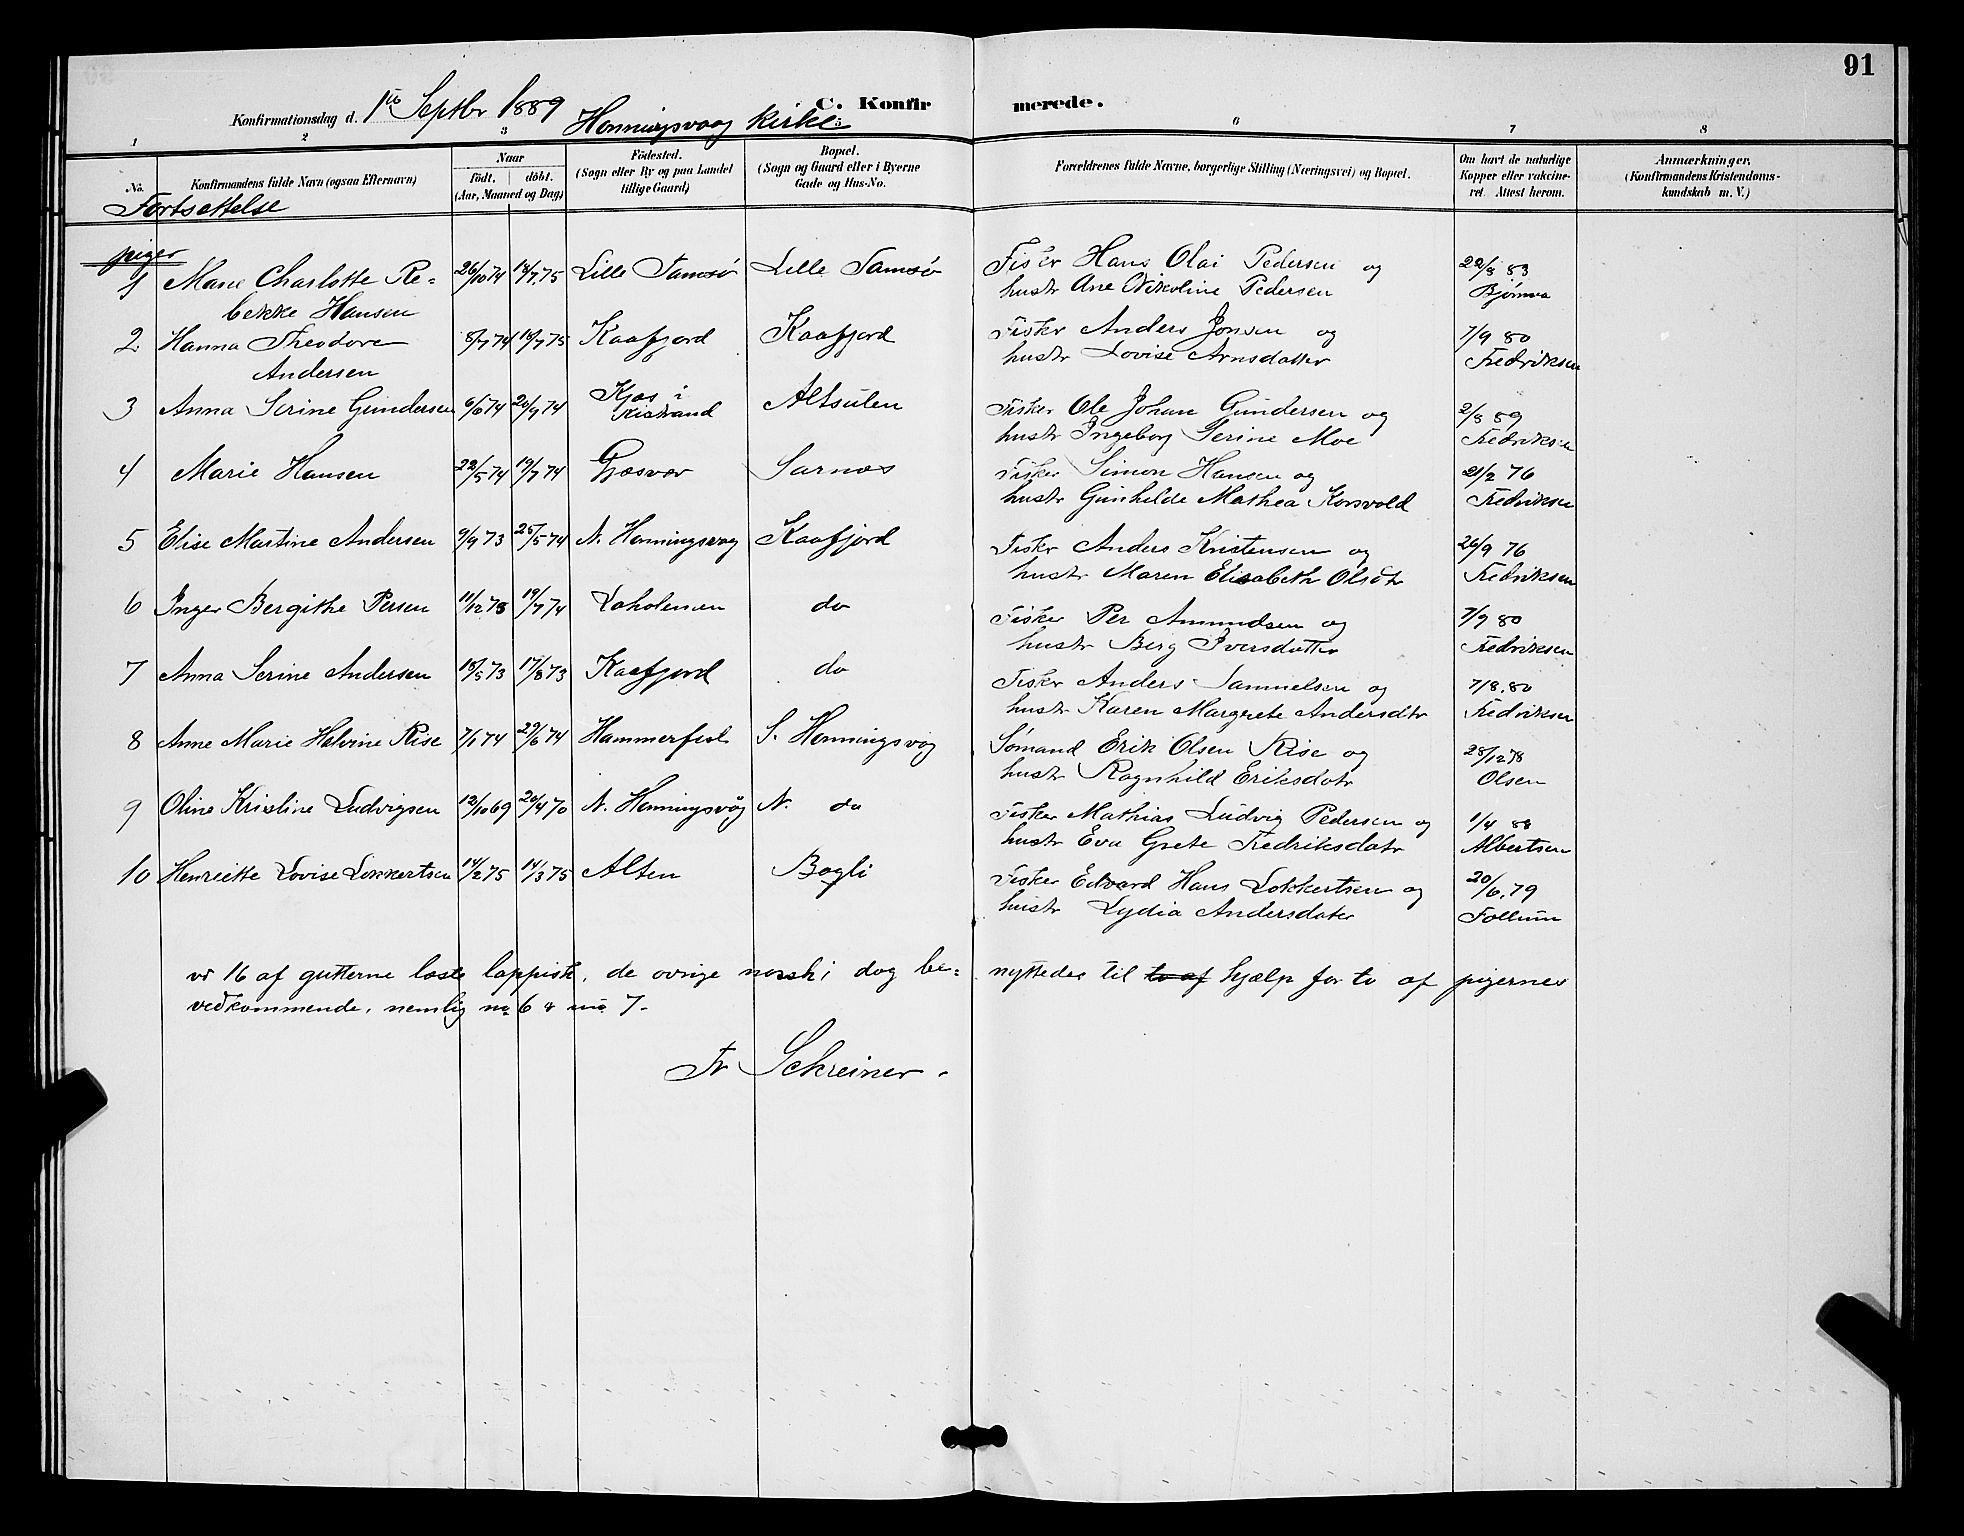 91
C. Konfirmerede.
Konfirmationsdag d. 1ste Septbr 1889 Honningsvaag Kirke
1 2 3 5 6 7 8
No. Konfirmandens fulde Navn (ogsaa Efternavn) Naar født, døbt. (Aar, Maaned og Dag) Födested. (Sogn eller By og paa Landet tillige Gaard) Bopæl. (Sogn og Gaard eller i Byerne Gade og Hus-No. Forældrenes fulde Navne, borgerlige Stilling (Næringsvei) og Bopæl. Om havt de naturlige Kopper eller vaccineret. Attest herom. Anmærkninger, (Konfirmandens Kristendomskundskab m. V.)
Fortsettelse
piger
1 Marie Charlotte Re= 26/10 74 18/7.75 Lille Tamsø Lille Tamsø Fisker Hans Olai Pedersen og 22/8 83
bekke Hansen hustr Ane Nikoline Pedersen
2 Hanna Theodore 8/7 74 18/7 75 Kaafjord Kaafjord Fisker Anders Jonsen og 7/9 80
Andersen hustr Lovise Arnsdatter Fredriksen
3 Anna Serine Gundersen 6/6 74 20/9 74 Kjæs i Kistrand Altsulen Fisker Ole Johan Gundersen og 2/8 89
hustr Ingeborg Serine Moe Fredriksen
4 Marie Hansen 22/5 74 19/7 74 Gjæsvær Sarnæs Fisker Simon Hansen og 21/2 76
hustr Gunhilde Mathea Korsvold Fredriksen
5 Elise Martine Andersen 9/9 73 25/5 74 N. Honningsvag Kaafjord Fisker Anders Kristensen og 26/9 76
hustr Maren Elisabeth Olsdtr Fredriksen
6 Inger Bergithe Persen 11/12 73 19/7 74 Loholmen do Fisker Per Amundsen og 7/9 80
hustr Berg Iversdatter Fredriksen
7 Anna Serine Andersen 18/5 73 17/8 73 Kaafjord do Fisker Anders Samuelsen og 7/8.80
hustr Karen Margrete Andersdtr Fredriksen
8 Anne Marie Helvine Rise 7/1 74 29/6 74 Hammerfest S. Honningsvåg Sømand Erik Olsen Rise og 28/12 78
hustr Ragnhild Eriksdatr Olsen
9 Oline Kristine Ludvigsen 12/10 69 20/4 70 N. Honningsvåg N. do Fisker Mathias Ludvig Pedersen og 1/4 88
hustr Eva Grete Fredriksdatr Albertsen
10 Henriette Lovise Lokkertsen 14/2 75 14/3 75 Alten Bogli Fisker Edvard Hans Lokkertsen og 20/6.79
hustr Lydia Andersdatr Follum
16 af gutterne læste lappisk, de øvrige norsk; dog be= nyttedes til to af hjælp for to af pigernes
vedkommende, nemlig no 6 & no 7.
Fr Schreiner.